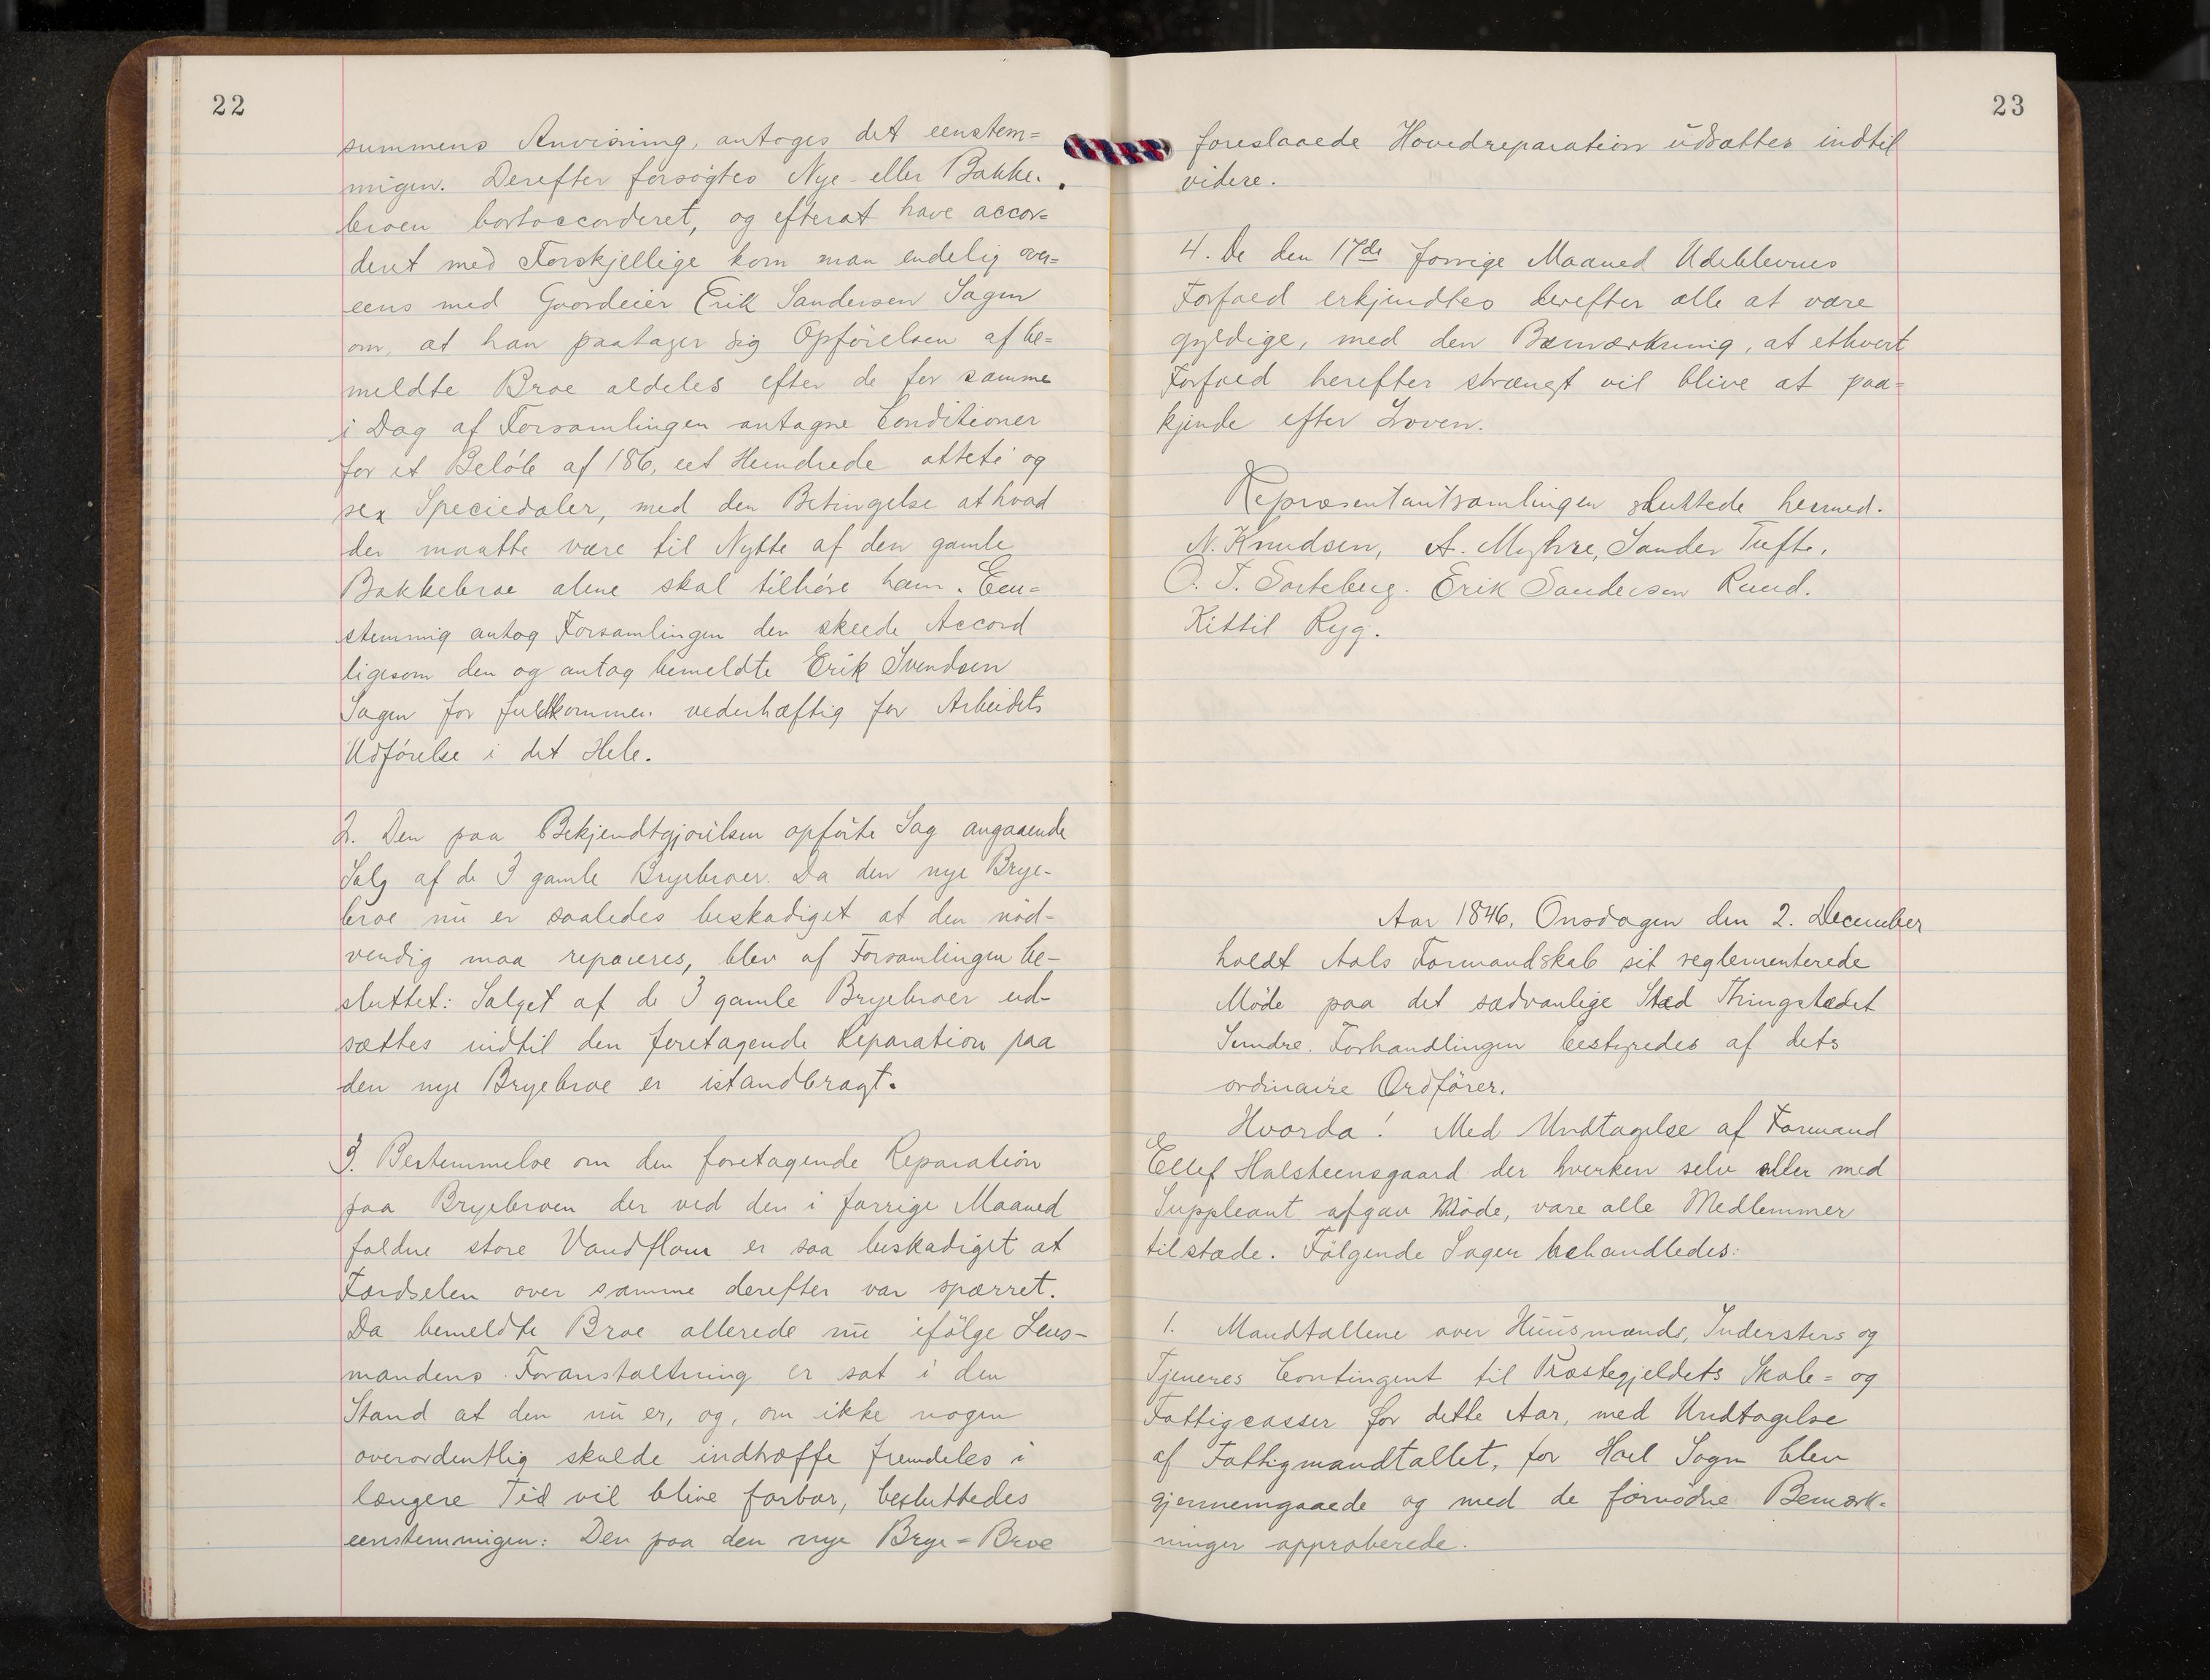 22
summens Anvisning, antoges det eenstem=
migen. Derefter forsøgtes Nye- eller Bakke-
broen bortaccorderet, og efterat have accor=
deret med Forskjellige kom man endelig over=
eens med Gaardeier Erik Sandersen Sagen
om, at han paatager sig Opførelsen af be=
meldte Broe aldeles efter de for samme
i Dag af Forsamlingen antagne Conditioner
for et Beløb af 186, eet Hundrede otteti og
sex Speciedaler, med den Betingelse at hvad
der maatte være til Nytte af den gamle
Bakkebroe alene skal tilhøre ham. Een=
stemmig antog Forsamlingen den skeede Accord
ligesom den og antog bemeldte Erik Svendsen
Sagen for fuldkommen vederhæftig for Arbeidets
Udførelse i det Hele.
2. Den paa Bekjendtgjørelsen opførte Sag angaaende
Salg af de 3 gamle Bryebroer. Da den nye Brye-
broe nu er saaledes beskadiget at den nød-
vendig maa repareres, blev af Forsamlingen be-
sluttet: Salget af de 3 gamle Bryebroer ud-
sættes indtil den foretagende Reparation paa
den nye Bryebroe er istandbragt.
3. Bestemmelse om den foretagende Reparation
paa Bryebroen der ved den i forrige Maaned
faldne store Vandflom er saa beskadiget at
Færdselen over samme derefter var spærret.
Da bemeldte Broe allerede nu ifølge Lens-
mandens Foranstaltning er sat i den
Stand at den nu er, og, om ikke nogen
overordentlig skulde indtræffe fremdeles i
længere Tid vil blive farbar, besluttedes
eenstemmigen: Den paa den nye Brye=Broe
23
foreslaaede Hovedreparation udsættes indtil
videre.
4. De den 17de forrige Maaned Udeblevnes
Forfald erkjendtes derefter alle at være
gyldige, med den Bemærkning, at ethvert
Forfald herefter strængt vil blive at paa=
kjende efter Loven.
Repræsentantsamlingen sluttede hermed.
N. Knudsen, A. Myhre, Sander Tufte,
O. T. Sorteberg. Erik Sandersen Ruud.
Kittil Ryg.
Aar 1846, Onsdagen den 2. December
holdt Aals Formandskab sit reglementerede
Møde paa det sædvanlige Sted Thingstedet
Sundre. Forhandlingen bestyredes af dets
ordinaire Ordfører.
Hvorda! Med Undtagelse af Formand
Ellef Halsteensgaard der hverken selv eller med
Suppleant afgav Møde, vare alle Medlemmer
tilstæde. Følgende Sager behandledes:
1. Mandtallene over Huusmænds, Indersters og
Tjeneres Contingent til Præstegjeldets Skole= og
Fattigcasser for dette Aar, med Undtagelse
af Fattigmandtallet, for Hoel Sogn blev
gjennemgaaede og med de fornødne Bemærk-
ninger approberede.